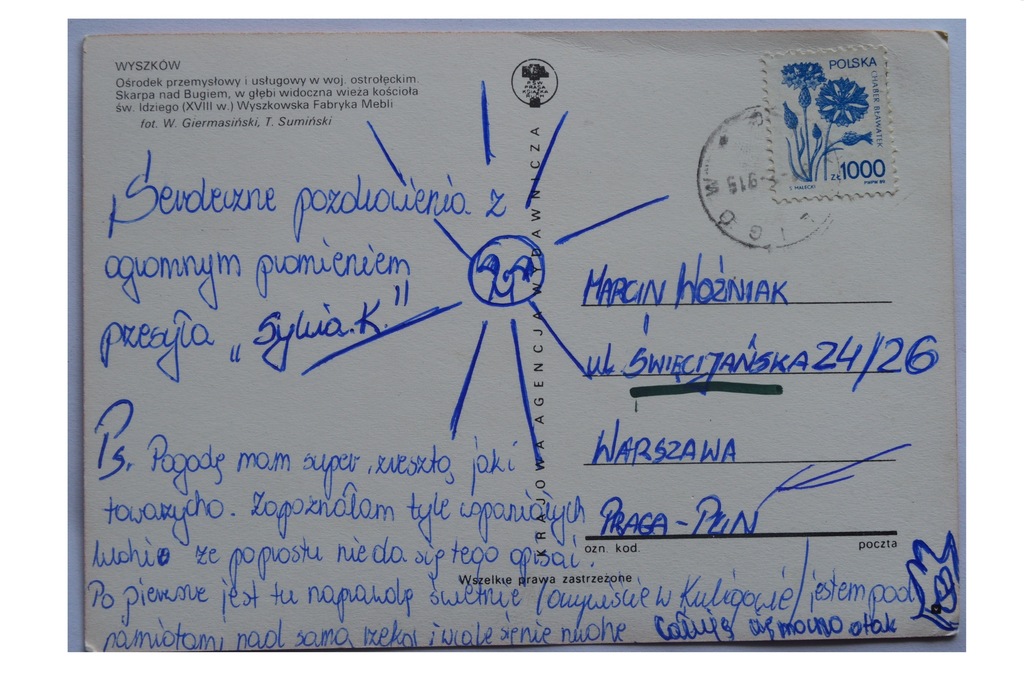 WYSZKÓW
Ośrodek przemysłowy i usługowy w woj. ostrołęckim.
Skarpa nad Bugiem, w głębi widoczna wieża kościoła
św. Idziego (XVIII w.) Wyszkowska Fabryka Mebli
fot. W. Giermasiński, T. Sumiński
KRAJOWA AGENCJA WYDAWNICZA
POLSKA
CHABER BŁAWATEK
ZŁ 1000
S. MAŁECKI
PWPW 89
Serdeczne pozdrowienia z
ogromnym promieniem
przesyła „Sylwia.K."
MARCIN WOŹNIAK
ul. ŚWIĘCIJAŃSKA 24/26
WARSZAWA
PRAGA-PŁN
ozn. kod.
poczta
Ps. Pogodę mam super, zresztą jaki
towarzycho. Zapoznałam tyle wspaniałych
ludzi że poprostu nie da się tego opisać.
Wszelkie prawa zastrzeżone
Po pierwsze jest tu naprawdę świetnie /oczywiście w Kuligowie/ jestem pod
namiotami, nad samą rzeką i wcale się nie nudzę. Całuję cię mocno o tak